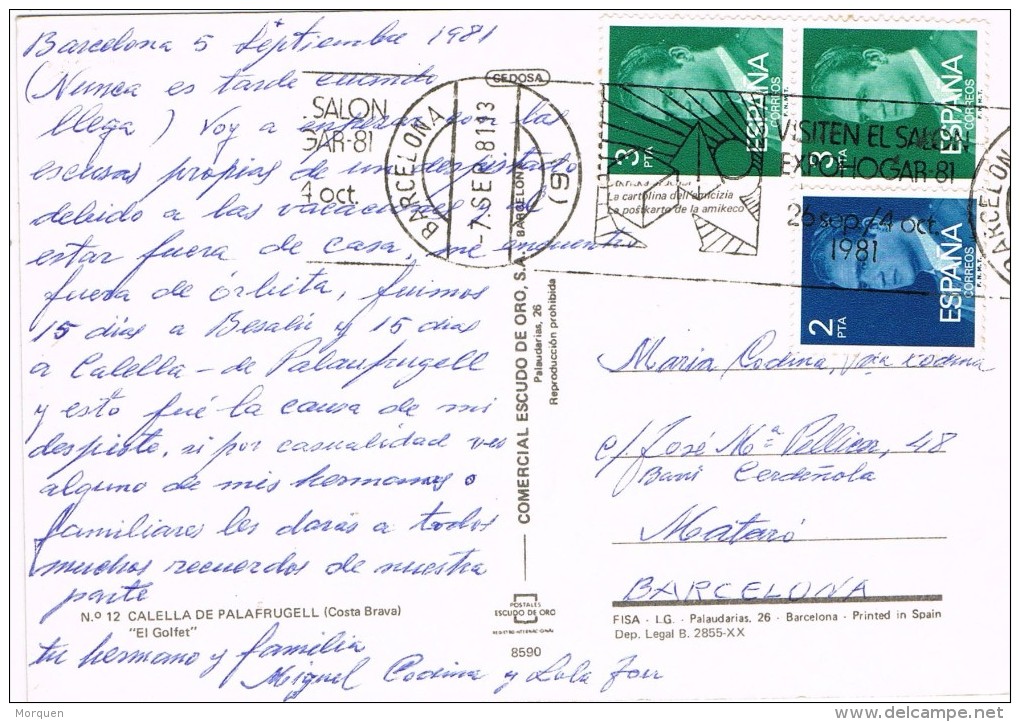 Barcelona 5 Septiembre 1981
(Nunca es tarde cuando
llega) Voy a empezar con las
escusas propias de un despistado
debido a las vacaciones y al
estar fuera de casa, me encuentro
fuera de órbita, fuimos
15 días a Besalú y 15 dias
a Calella - de Palaufrugell
y esto fué la causa de mi
despiste, si por casualidad ves
alguno de mis hermanos o
familiares les darás a todos
muchos recuerdos de nuestra
parte
Nº 12 CALELLA DE PALAFRUGELL (Costa Brava)
"El Golfet"
tu hermano y familia
Miquel Codina y Lola
SALON
GAR-81
4 oct.
BARCELONA
-7.SEP 81 13
BARCELONA
(9)
CEDOSA
COMERCIAL ESCUDO DE ORO, S.A.
Palaudarias, 26
Reproducción prohibida
POSTALES
ESCUDO DE ORO
REGISTRO INTERNACIONAL
8590
3 PTA
ESPAÑA
CORREOS
F.N.M.T.
3 PTA
ESPAÑA
CORREOS
F.N.M.T.
2 PTA
ESPAÑA
CORREOS
La cartolina dell'amicizia
La poŝtkarto de la amikeco
VISITEN EL SALON
EXPOHOGAR-81
26 sep./4 oct.
1981
BARCELONA
Maria Codina, Codina
c/. José Mª Pellicer, 48
Barri Cerdeñola
Mataró
BARCELONA
FISA - I.G. - Palaudarias, 26 - Barcelona - Printed in Spain
Dep. Legal B. 2855-XX
Morquen
www.delcampe.net